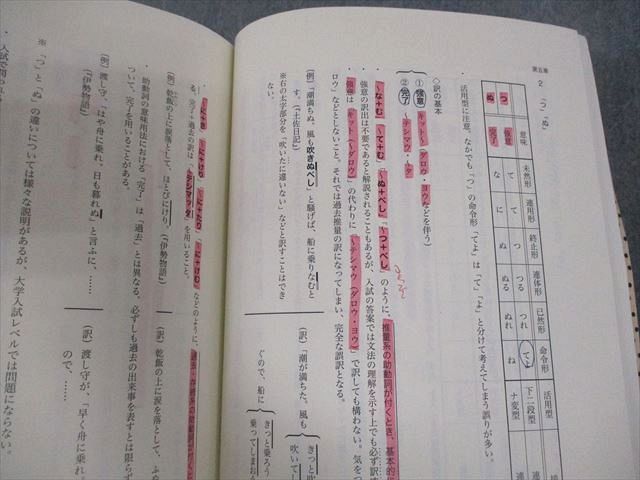 第五章
2 「つ」「ぬ」
意味 未然形 連用形 終止形 連体形 已然形 命令形 活用型
つ 強意 て て つ つる つれ てよ 下二段型
ぬ 完了 な に ぬ ぬる ぬれ ね ナ変型
・活用型に注意。なかでも「つ」の命令形「てよ」は「て」「よ」と分けて考えてしまう誤りが多い。
◇訳の基本
①強意 キット〜(ダロウ・ヨウなどを伴う)
②完了 〜テシマウ・〜タ
・「〜な+む」「〜て+む」「〜ぬ+べし」「〜つ+べし」のように、推量系の助動詞が付くとき、基本的に
強意の訳出は不要であると解説されることもあるが、入試の答案では文法の理解を示す上でも必ず訳
強意は「キット(〜ダロウ・ヨウ)」の代わりに「〜テシマウ(ダロウ・ヨウ)」で訳しても構わない。気をつ
ロウ」などとしないこと。それでは過去推量の訳になってしまい、完全な誤訳となる。
(例)「潮満ちぬ。風も吹きぬべし」と騒げば、船に乗りなむと
(『土佐日記』)
(訳)「潮が満ちた。風も
ぐので、船に
きっと吹
吹いてし
きっと乗ろう
乗ってしまお
※右の太字部分を「吹いたに違いない」などと訳すことはでき
ない。
「〜に+き」「〜に+けり」「〜に+たり」「〜に+けむ」などのように、過去・存続系の助動詞が付くと
る。完了+過去の訳は、「〜テシマッタ」を用いること。
・助動詞の意味用法における「完了」は「過去」とは異なる。必ずしも過去の出来事を表すとは限らず
ついて、完了を用いることがある。
(例)乾飯の上に涙落として、ほとびにけり。(『伊勢物語』)
(訳)乾飯の上に涙を落として、ふや
(例)渡し守、「はや舟に乗れ。日も暮れぬ」と言ふに、……
(『伊勢物語』)
(訳)渡し守が、「早く舟に乗れ
ので、……
※「つ」と「ぬ」の違いについては様々な説明があるが、大学入試レベルでは問題にならない。